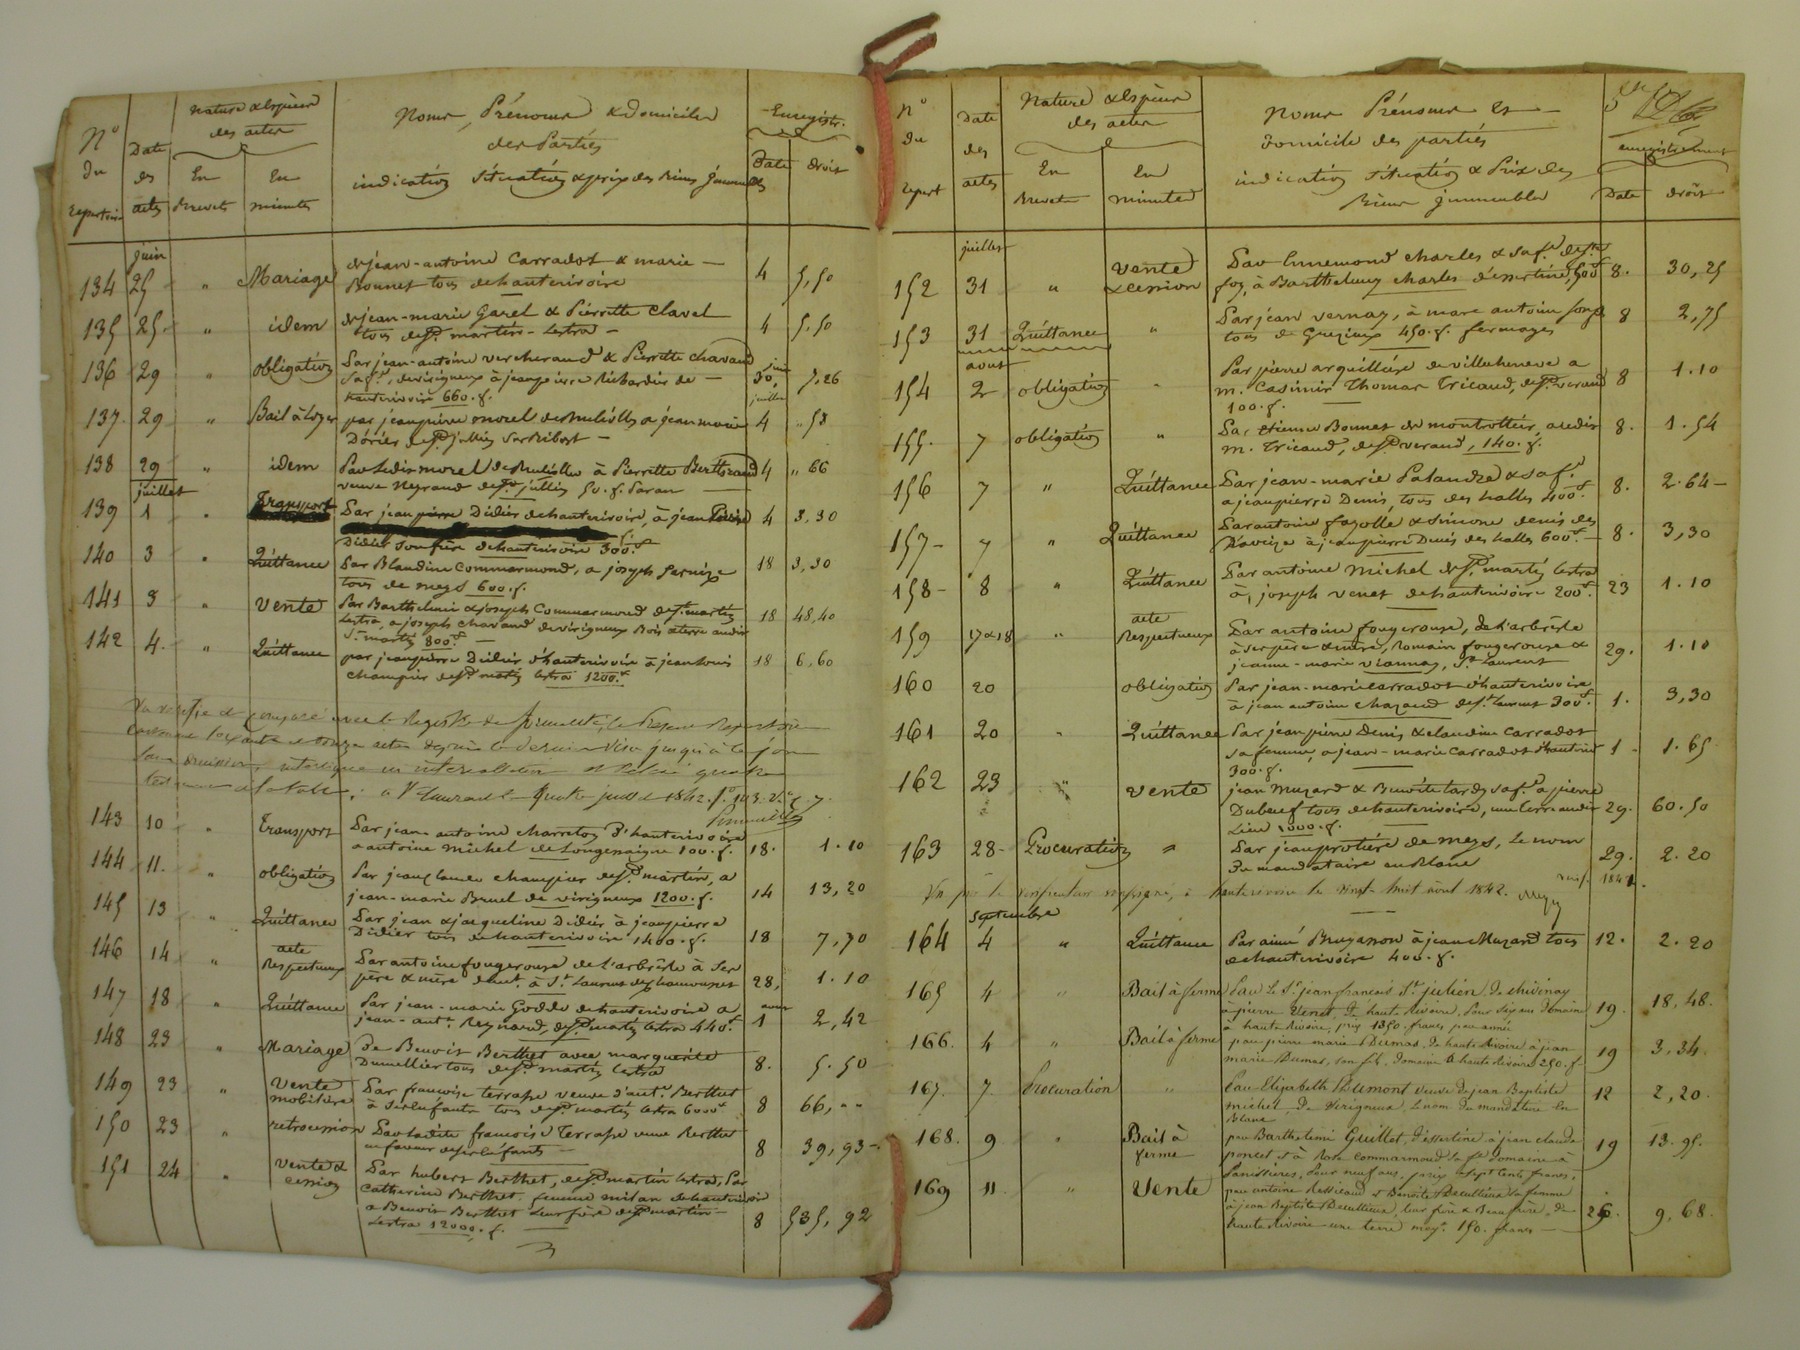 N°
du
Repertoire
Date
des
actes
nature & Espèces
des actes
En
Brevets
En
minutes
Noms, Prénoms & Domiciles
des Parties
indication Situation & prix des Biens Immeubles
Enregistr.
Date
droit
juin
134 25 " Mariage de jean-antoine Carradot & marie 4 5,50
Bonnet tous de hauterivoire
135 25 " idem de jean-marie Garel & Pierrette Clavel 4 5.50
tous de St martin-lestra
136 29 " obligation Par jean-antoine vercherand & Pierrette Chavand juin 30, 7,26
sa fe, de virigneux à jean pierre Richardier de
hauterivoire 660.f.
juillet
137 29 " Bail à loyer par jean pierre morel de a jean marie 4 " 58
de St jullien sur Bibost
138 29 " idem Par ledit morel à Pierrette Berthrand 4 " 66
veuve Neyraud de St jullien 50.f. Par an
juillet
139 1 " Transport Par jean pierre Didier de hauterivoire, à jean Pierre 4 3,30
Didier son frère de hauterivoire 300f.
140 3 " Quittance Par Blandine Commarmond, a joseph 18 3,30
tous de meys 600.f.
141 3 " Vente Par Barthelemi & joseph Commarmond de St martin 18 48,40
lestra, a joseph Chavand de virigneux Bois & terre audit
St martin 800f.
142 4 " Quittance par jean pierre Didier d'hauterivoire à jean louis 18 6,60
Champier de St martin lestra 1200.f
Vu vérifié et comparé avec le Registre de formalité, le Présent Repertoire
contenant soixante et onze actes depuis le dernier Visa jusqu'à ce jour
sans omission, interligne ni intercallation
a St Laurent le quatre juillet 1842. f° 103 V° C. 7.
143 10 " transport Par jean-antoine Charreton d'hauterivoire 18. 1.10
a antoine Michel de Longessaigne 100.f.
144 11. " obligation Par jean claude Champier de St martin, a 14 13,20
jean-marie Bruel de virigneux 1200.f.
145 13 " Quittance Par jean & jacqueline Didier à jean pierre 18 7,70
Didier tous de hauterivoire 1400.f.
146 14 " acte
Respectueux Par antoine fougerouse de l'arbrêle à ses 28, 1.10
père & mère à St Laurent de chamousset
aout
147 18 " Quittance Par jean-marie Goddes de hauterivoire a 1 2,42
jean-ant.e Reynard, de St martin lestra 440.f
148 23 " Mariage De Benoit Berthet avec marguerite 8. 5.50
Dumellier tous de St martin lestra
149 23 " Vente
mobilière Par françoise terrasse veuve d'ant.e Berthet 8 66,--
à ses enfants tous de St martin lestra 6000f
150 23 " retrocession Par ladite francoise Terrasse veuve Berthet 8 39,93
en faveur de ses enfants
151 24 " Vente &
cession Par hubert Berthet, de St martin lestra, Par
Catherine Berthet femme milan de hauterivoire
a Benoit Berthet leur frère de St martin
lestra 12000.f. 8 535,92
N°
du
Repert
Date
des
actes
Nature & Espèces
des actes
En
Brevets
En
minutes
Noms Prénoms, et
domicile des parties
indication situation & Prix des
Biens immeubles
enregistrement
Date
droit
juillet
152 31 " Vente
& cession Par Ennemond Charles & sa fe. de St
foy, à Barthelemy Charles d'essertines, 500f 8. 30,25
153 31 Quittance " Par jean vernay, à marc antoine 8 2,75
tous de Grezieux 450.f. fermages
aout
154 2 obligation " Par pierre arquillière de villecheneve a 8 1.10
m. Casimir Thomas Tricaud, de St verand
100.f.
155. 7 obligation " Par etienne Bonnet de montrottier, audit 8. 1.54
m. Tricaud, de St verand, 140.f.
156 7 " Quittance Par jean-marie Palandre & sa fe. 8. 2.64
a jean pierre Denis, tous des halles 400f.
157 7 " Quittance Par antoine fayolle & Simone denis des 8. 3,30
D'aveize à jean pierre Denis des halles 600f.
158 8 " Quittance Par antoine Michel de St martin lestra 23 1.10
à joseph venet de hauterivoire 200f.
159 17&18 " acte
Respectueux Par antoine fougerouse, de l'arbrêle 29. 1.10
à ses père & mère, Romain fougerouse &
jeanne-marie viannay, St Laurent
160 20 obligation Par jean-marie carradot d'hauterivoire 1. 3,30
à jean antoine Chazaud de St Laurent 300f.
161 20 " Quittance Par jean pierre Denis & claudine Carradot 1 1.65
sa femme, a jean-marie Carradot d'hauteriv
300.f.
162 23 " Vente jean Muzard & Benoîte lardy sa fe. a pierre 29. 60.50
Dubœuf tous de hauterivoire, une terre audit
Lieu 1000.f.
163 28 Procuration " Par jean protière de meys, le nom 29. 2.20
du mandataire en Blanc
Vu par le vérificateur soussigné, à hauterivoire le vingt huit août 1842.
septembre
164 4 " Quittance Par aimé Bruyasson à jean Muzard tous 12. 2.20
de hauterivoire 400.f.
165 4 " Bail à ferme Par le Sr jean francois St julien de chivinay 19. 18,48.
a pierre Venet de haute Rivoire, Pour six ans Domaine
à haute Rivoire, prix 1350 francs par année
166. 4 " Bail à ferme par pierre marie Dumas de haute Rivoire à jean 19 3,34.
marie Dumas, son fils, domaine à haute Rivoire 250.f.
167. 7 Procuration " Par Elizabeth Dumont veuve de jean Baptiste 12 2,20.
michel, de Virigneux, le nom du mandataire En
Blanc
168. 9 " Bail à
ferme par Barthelemi Guillot, d'essertine à jean claude 19 13.95.
poncet et à Rose Commarmond sa fe domaine à
Panissières, Pour neuf ans, prix de sept Cents francs,
169 11. " Vente par antoine Ressicaud & Benoîte Decultieux sa femme
à jean Baptiste Decultieux, leur frère & Beau frère, de 26. 9,68.
haute Rivoire une terre moy. 150. francs